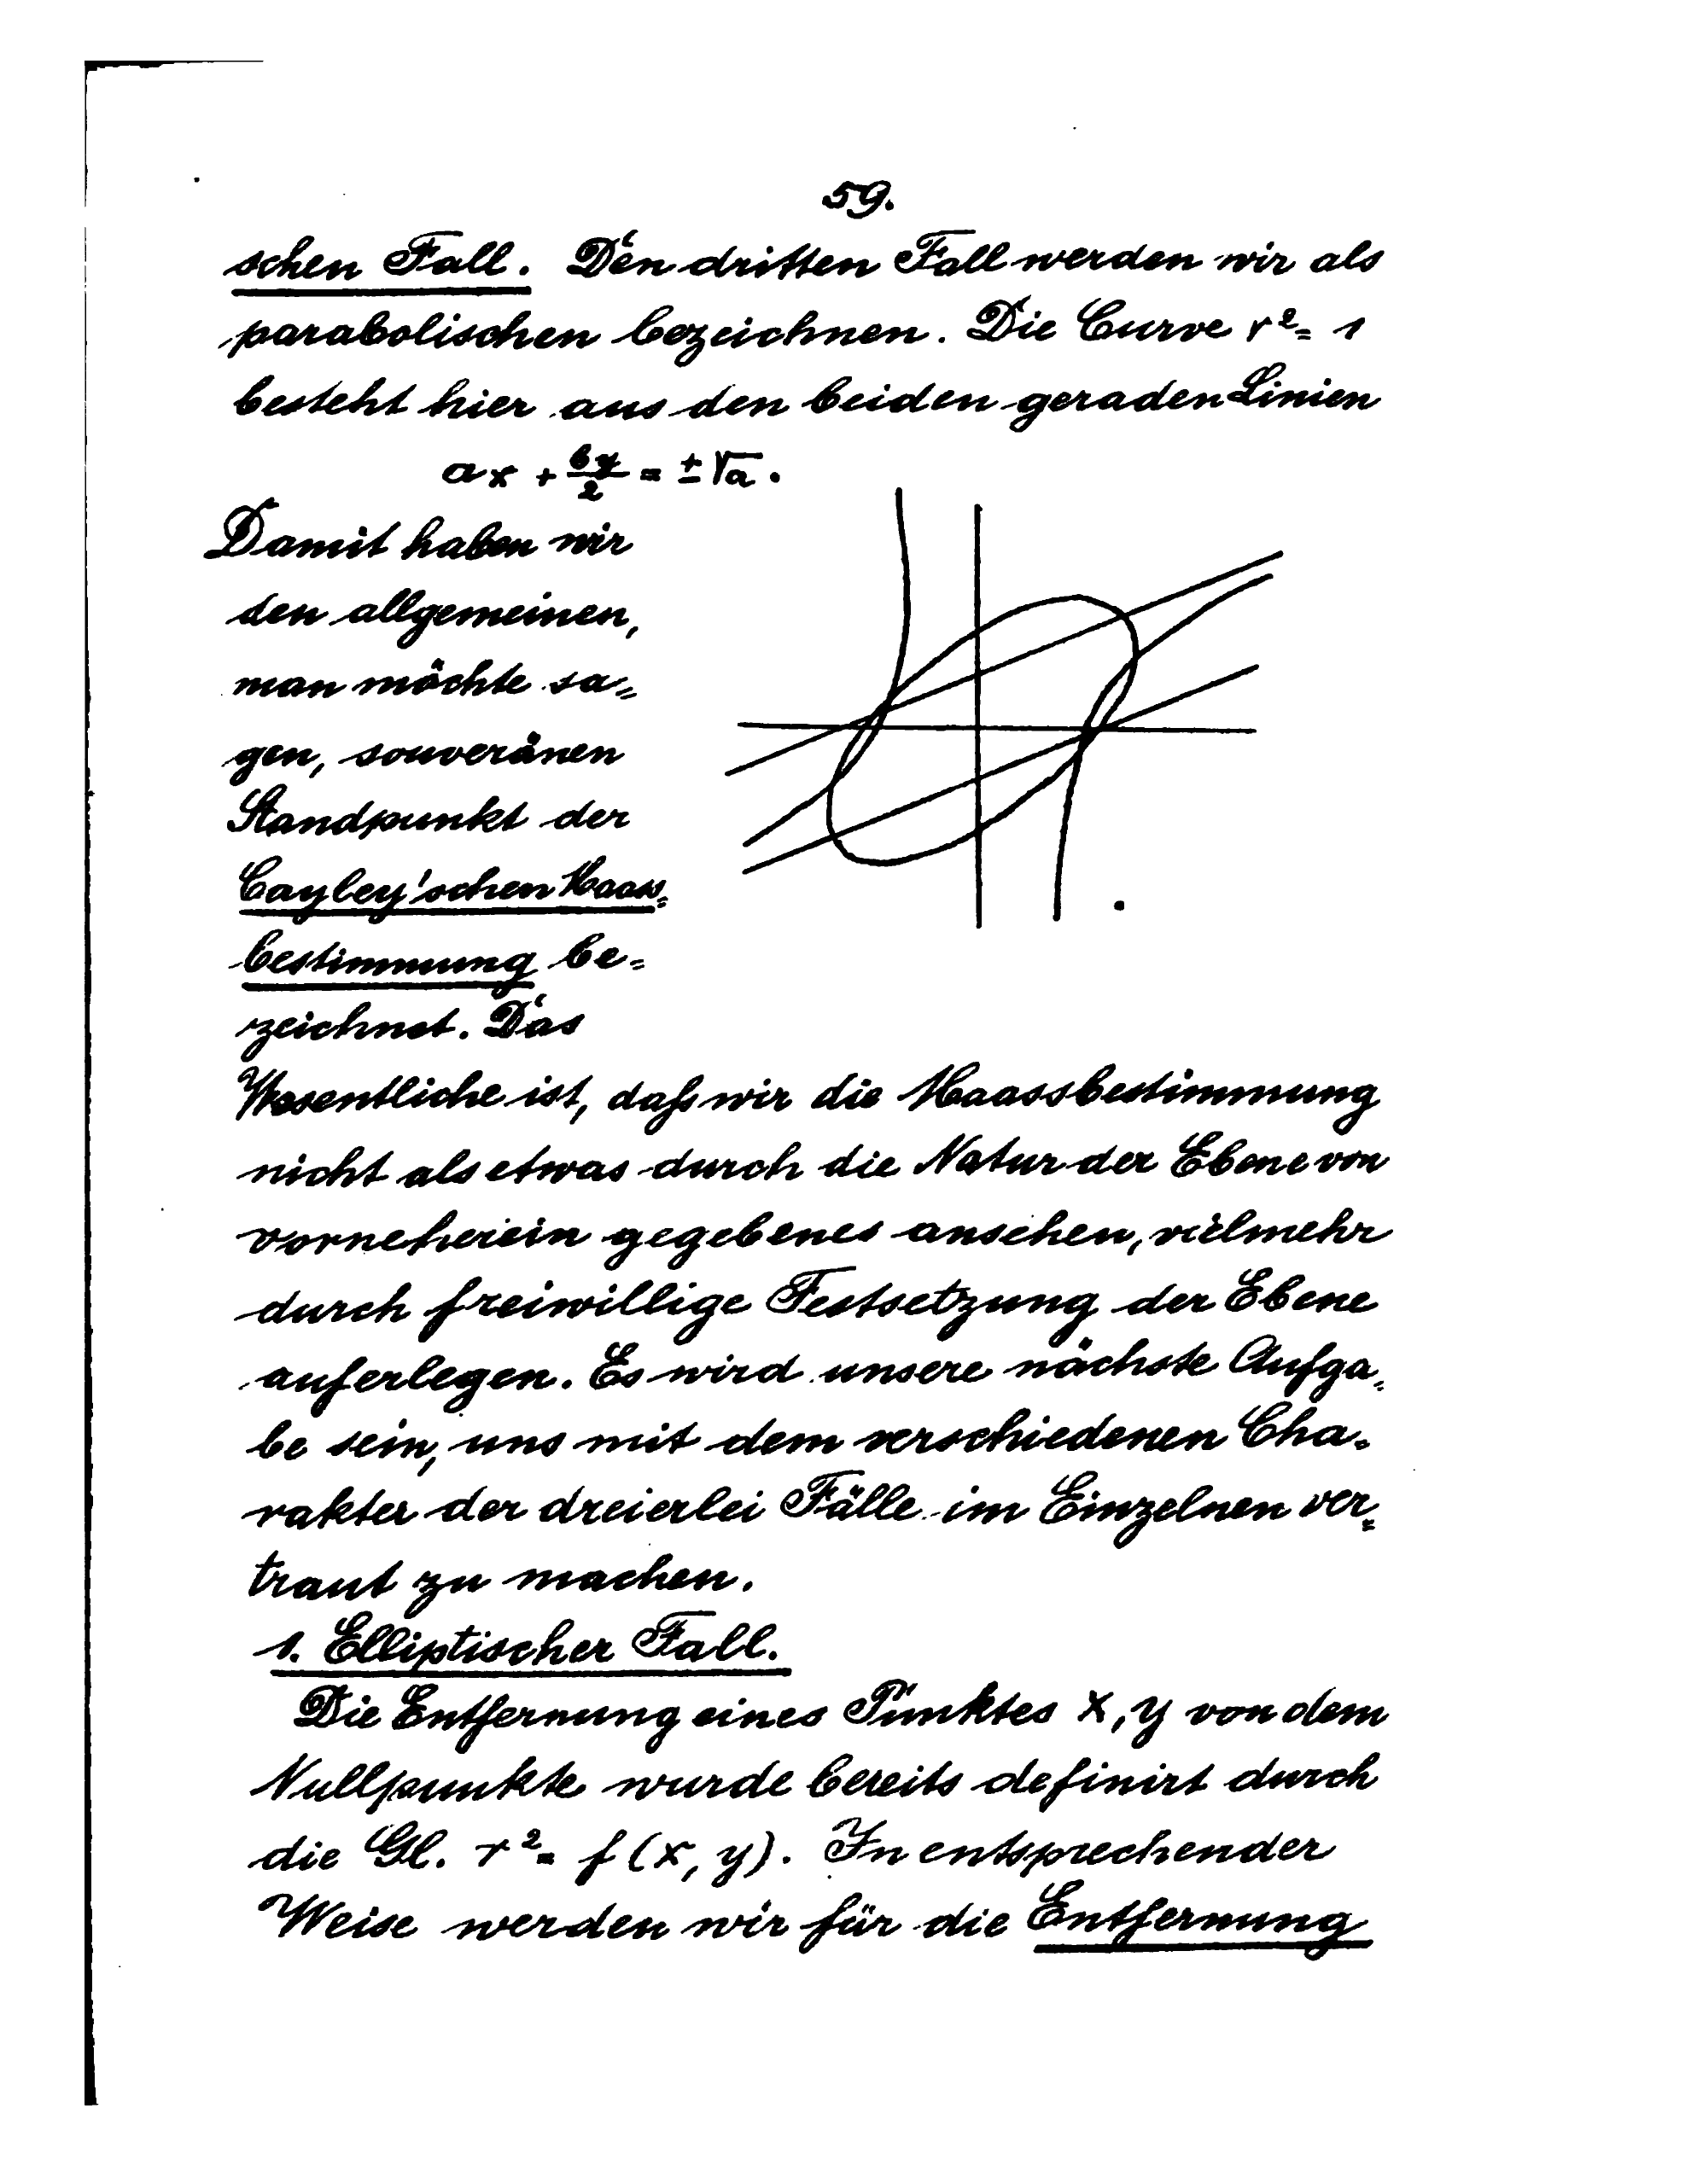 59.
schen Fall. Den dritten Fall werden wir als
parabolischen bezeichnen. Die Curve r² = 1
besteht hier aus den beiden geraden Linien
ax + by/2 = ±√a.
Damit haben wir
den allgemeinen,
man möchte sa=
gen, souveränen
Standpunkt der
Cayley'schen Maas=
bestimmung be=
zeichnet. Das
Wesentliche ist, daß wir die Maassbestimmung
nicht als etwas durch die Natur der Ebene von
vorneherein gegebenes ansehen, vielmehr
durch freiwillige Festsetzung der Ebene
auferlegen. Es wird unsere nächste Aufga=
be sein, uns mit dem verschiedenen Cha=
rakter der dreierlei Fälle im Einzelnen ver=
traut zu machen.
1. Elliptischer Fall.
Die Entfernung eines Punktes x, y von dem
Nullpunkte wurde bereits definirt durch
die Gl. r² = f(x, y). In entsprechender
Weise werden wir für die Entfernung